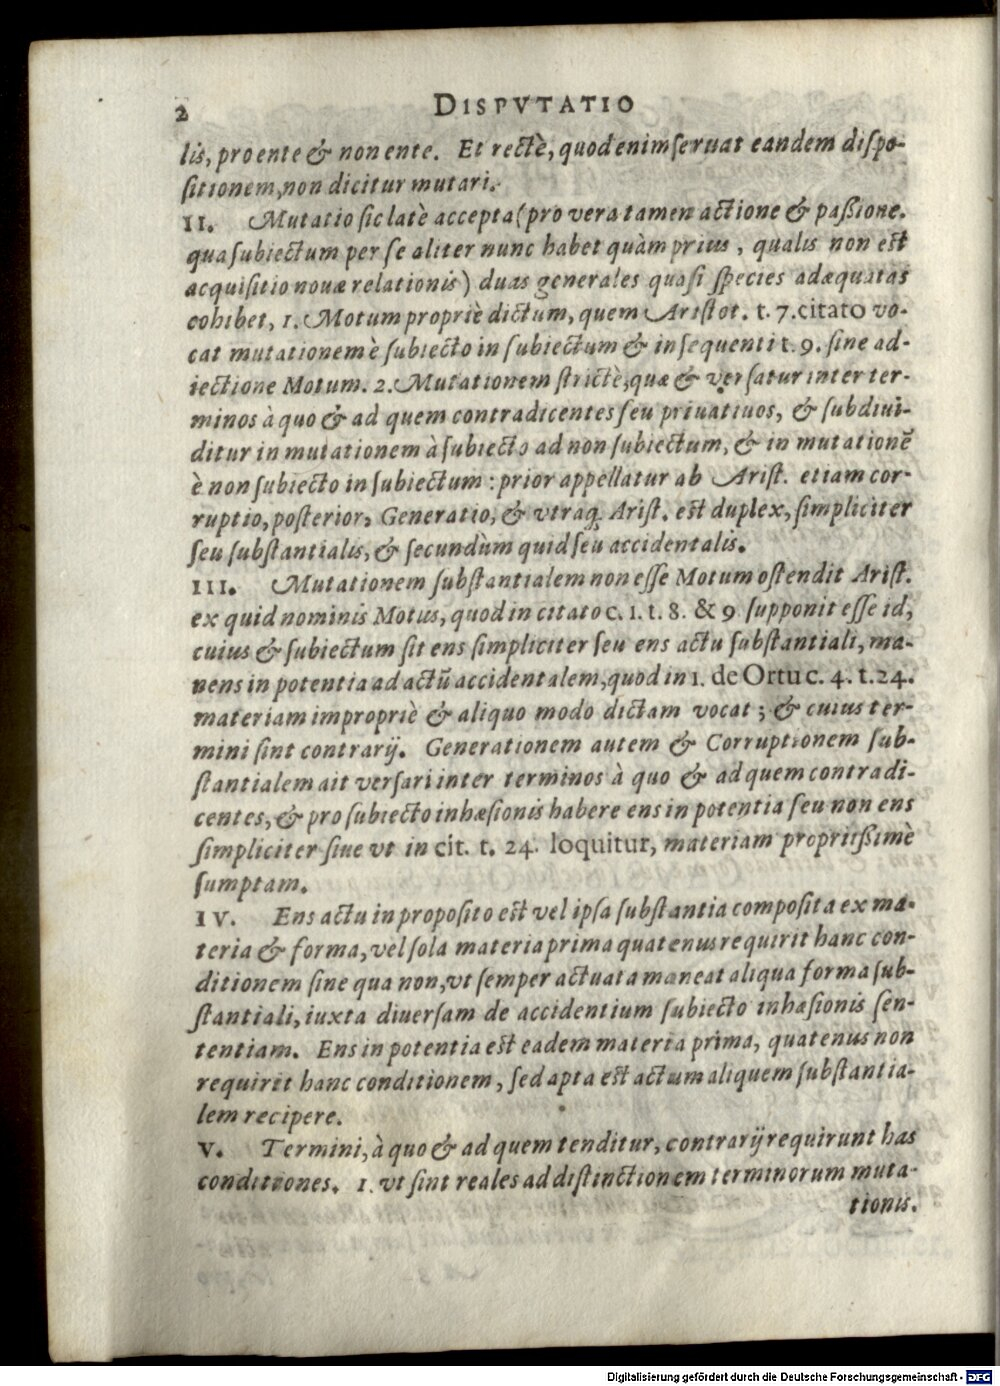 2 DISPVTATIO
lis, pro ente & non ente. Et rectè, quod enim ſeruat eandem diſpo-
ſitionem, non dicitur mutari.
II. Mutatio ſic latè accepta (pro vera tamen actione & paßione.
qua ſubiectum per ſe aliter nunc habet quàm prius, qualis non est
acquiſitio nouæ relationis) duas generales quaſi ſpecies adæquatas
cohibet, 1. Motum propriè dictum, quem Ariſtot. t. 7. citato vo-
cat mutationem è ſubiecto in ſubiectum & in ſequenti t. 9. ſine ad-
iectione Motum. 2. Mutationem ſtrictè, quæ & verſatur inter ter-
minos à quo & ad quem contradicentes ſeu priuatiuos, & ſubdiui-
ditur in mutationem à ſubiecto ad non ſubiectum, & in mutationē
è non ſubiecto in ſubiectum: prior appellatur ab Ariſt. etiam cor-
ruptio, poſterior, Generatio, & vtraq; Ariſt. est duplex, ſimpliciter
ſeu ſubſtantialis, & ſecundùm quid ſeu accidentalis.
III. Mutationem ſubſtantialem non eſſe Motum oſtendit Ariſt.
ex quid nominis Motus, quod in citato c. 1. t. 8. & 9 ſupponit eſſe id,
cuius & ſubiectum ſit ens ſimpliciter ſeu ens actu ſubſtantiali, ma-
nens in potentia ad actū accidentalem, quod in 1. de Ortu c. 4. t. 24.
materiam impropriè & aliquo modo dictam vocat; & cuius ter-
mini ſint contrarij. Generationem autem & Corruptionem ſub-
ſtantialem ait verſari inter terminos à quo & ad quem contradi-
centes, & pro ſubiecto inhæſionis habere ens in potentia ſeu non ens
ſimpliciter ſiue vt in cit. t. 24. loquitur, materiam propriißimè
ſumptam.
IV. Ens actu in propoſito est vel ipſa ſubſtantia compoſita ex ma-
teria & forma, vel ſola materia prima quatenus requirit hanc con-
ditionem ſine qua non, vt ſemper actuata maneat aliqua forma ſub-
ſtantiali, iuxta diuerſam de accidentium ſubiecto inhæſionis ſen-
tentiam. Ens in potentia est eadem materia prima, quatenus non
requirit hanc conditionem, ſed apta est actum aliquem ſubſtantia-
lem recipere.
V. Termini, à quo & ad quem tenditur, contrarij requirunt has
conditiones. 1. vt ſint reales ad diſtinctionem terminorum muta-
tionis.
Digitalisierung gefördert durch die Deutsche Forschungsgemeinschaft - DFG